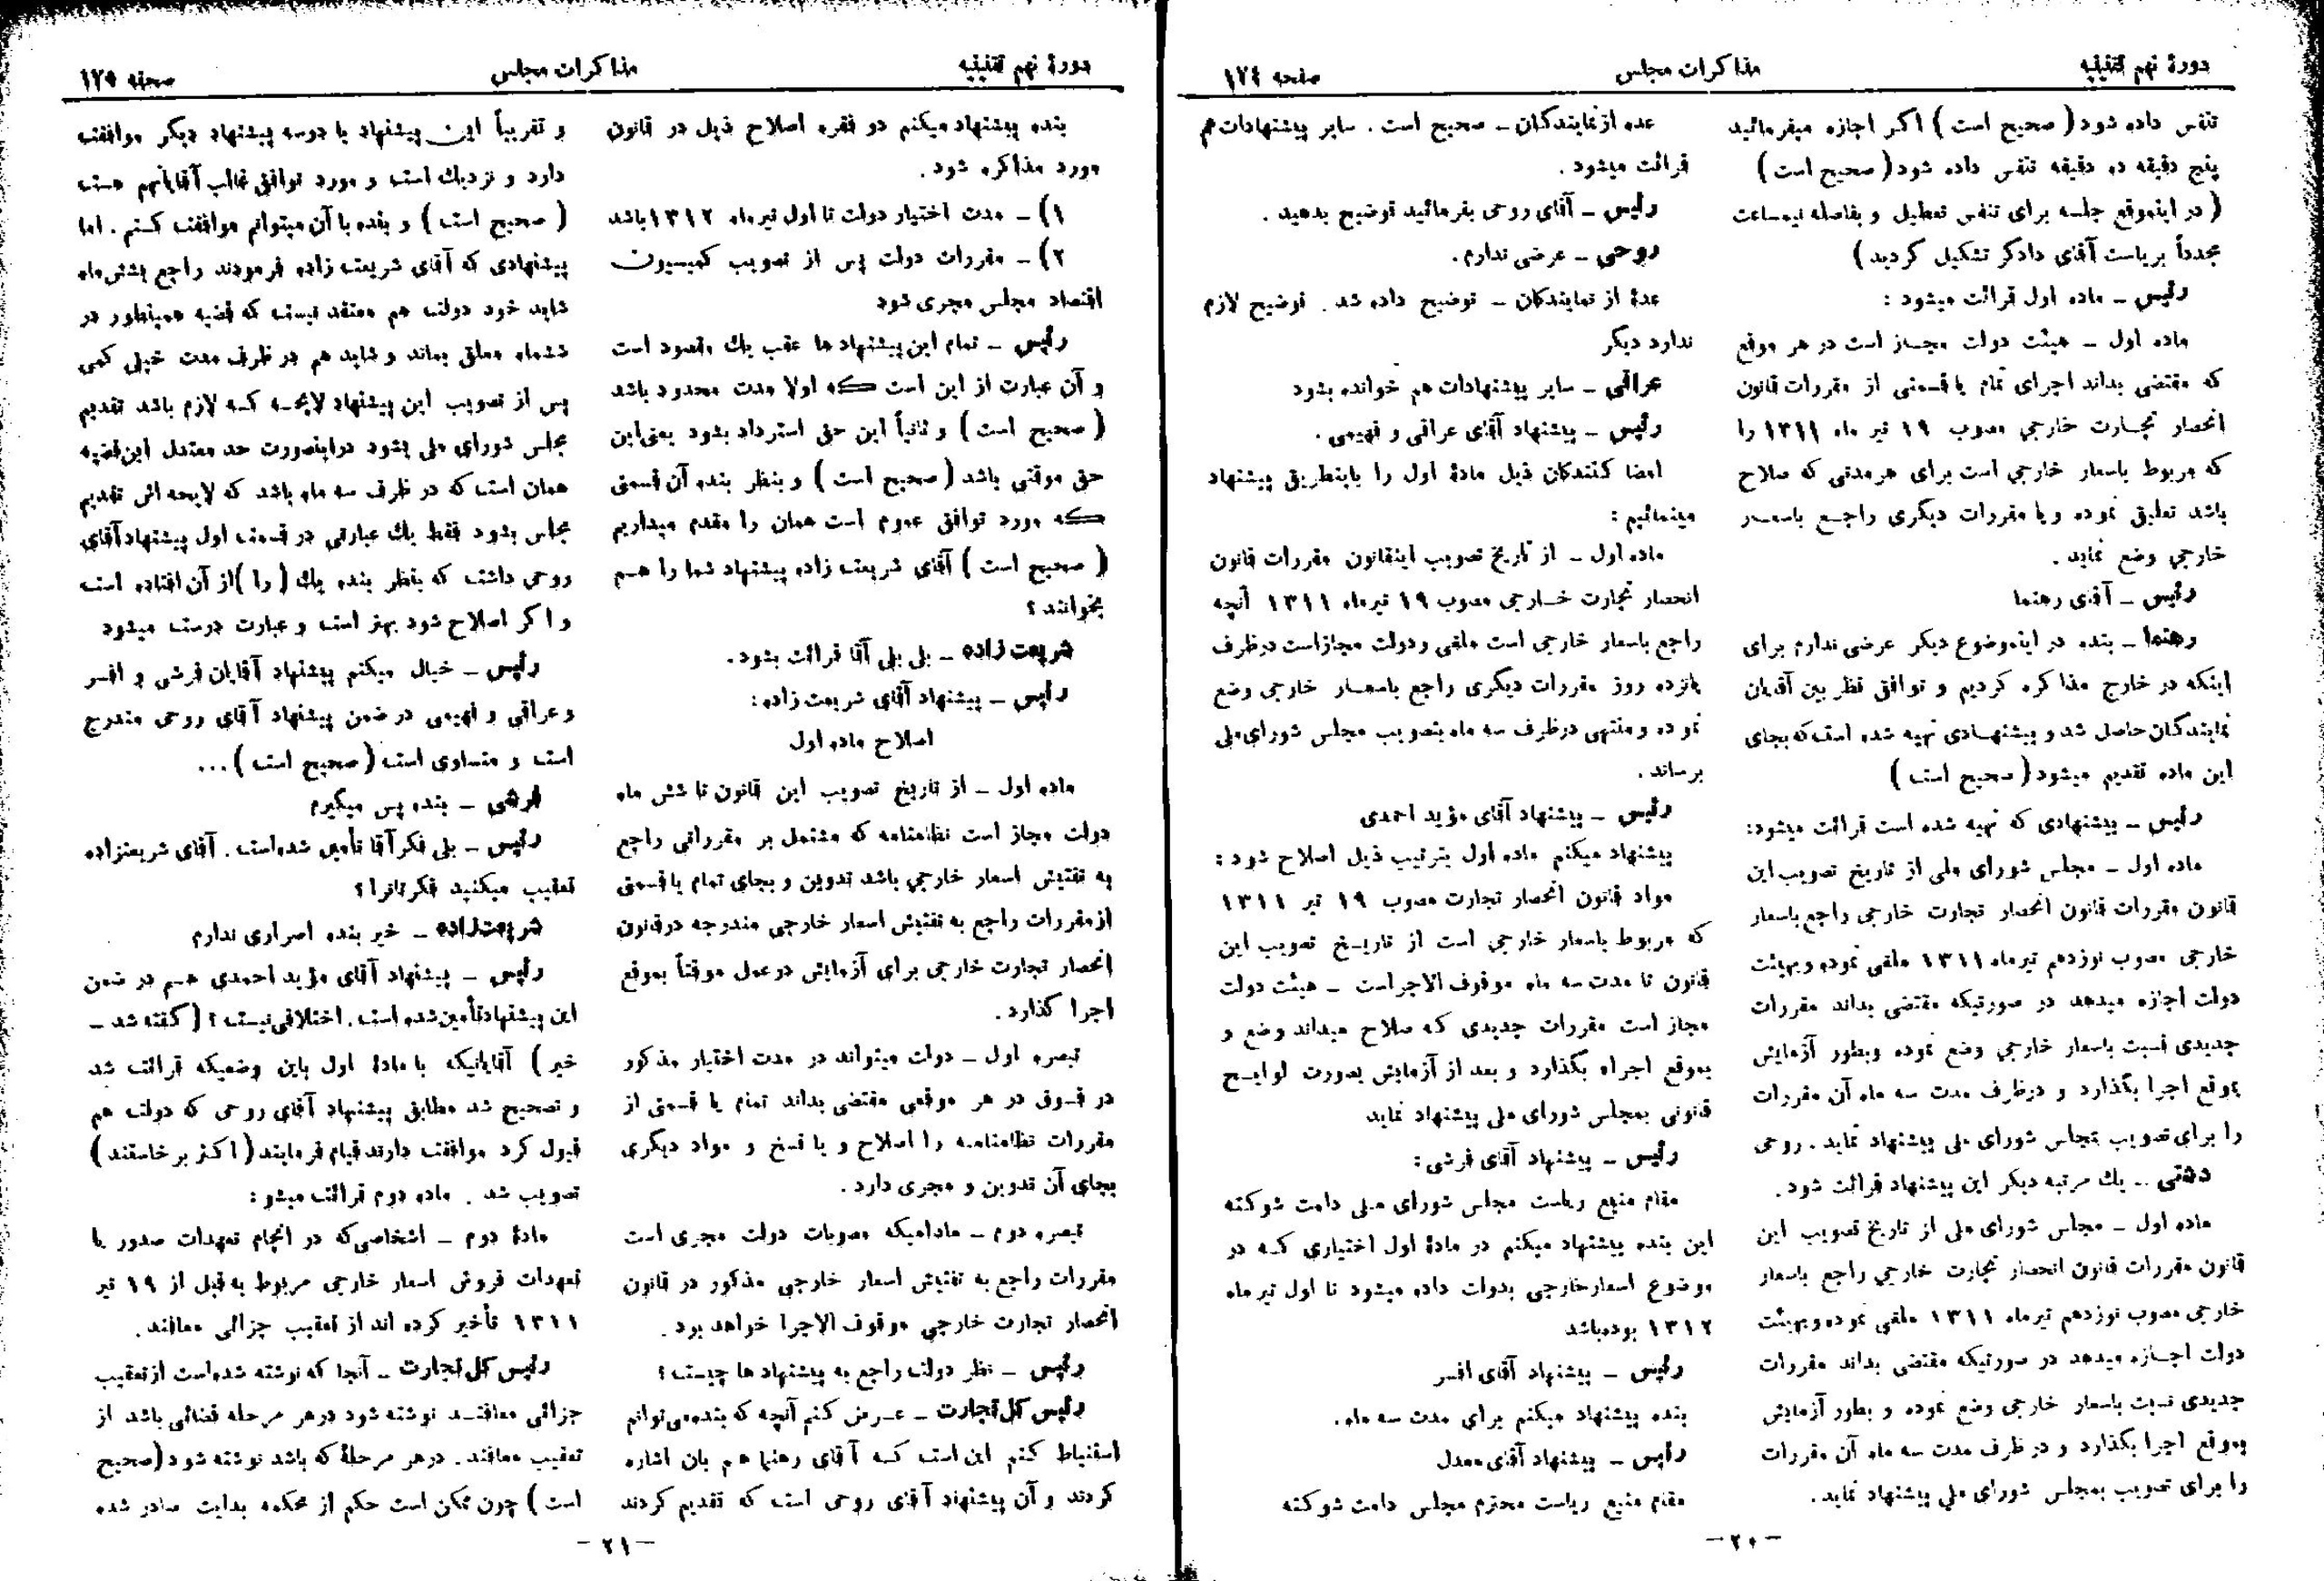 دورهٔ نهم تقنینیه
مذاکرات مجلس
صفحه ۱۷٤
تنفس داده شود ( صحیح است ) اگر اجازه میفرمائید
پنج دقیقه ده دقیقه تنفس داده شود ( صحیح است )
( در اینموقع جلسه برای تنفس تعطیل و بفاصله نیمساعت
مجدداً بریاست آقای دادگر تشکیل گردید )
رئیس ـ ماده اول قرائت میشود :
ماده اول ـ هیئت دولت مجاز است در هر موقع
که مقتضی بداند اجرای تمام یا قسمتی از مقررات قانون
انحصار تجارت خارجی مصوب ۱۹ تیر ماه ۱۳۱۱ را
که مربوط باسعار خارجی است برای هر مدتی که صلاح
باشد تعلیق نموده و یا مقررات دیگری راجع باسعار
خارجی وضع نماید .
رئیس ـ آقای رهنما
رهنما ـ بنده در اینموضوع دیگر عرضی ندارم برای
اینکه در خارج مذاکره کردیم و توافق نظر بین آقایان
نمایندگان حاصل شد و پیشنهادی تهیه شده است که بجای
این ماده تقدیم میشود ( صحیح است )
رئیس ـ پیشنهادی که تهیه شده است قرائت میشود:
ماده اول ـ مجلس شورای ملی از تاریخ تصویب این
قانون مقررات قانون انحصار تجارت خارجی راجع باسعار
خارجی مصوب نوزدهم تیرماه ۱۳۱۱ ملغی نموده و بهیئت
دولت اجازه میدهد در صورتیکه مقتضی بداند مقررات
جدیدی نسبت باسعار خارجی وضع نموده وبطور آزمایش
بموقع اجرا بگذارد و درظرف مدت سه ماه آن مقررات
را برای تصویب بمجلس شورای ملی پیشنهاد نماید . روحی
دشتی ـ یك مرتبه دیگر این پیشنهاد قرائت شود .
ماده اول ـ مجلس شورای ملی از تاریخ تصویب این
قانون مقررات قانون انحصار تجارت خارجی راجع باسعار
خارجی مصوب نوزدهم تیرماه ۱۳۱۱ ملغی نموده و بهیئت
دولت اجازه میدهد در صورتیکه مقتضی بداند مقررات
جدیدی نسبت باسعار خارجی وضع نموده و بطور آزمایش
بموقع اجرا بگذارد و در ظرف مدت سه ماه آن مقررات
را برای تصویب بمجلس شورای ملی پیشنهاد نماید.
عده ازنمایندگان ـ صحیح است . سایر پیشنهادات هم
قرائت میشود .
رئیس ـ آقای روحی بفرمائید توضیح بدهید .
روحی ـ عرضی ندارم .
عدهٔ از نمایندگان ـ توضیح داده شد . توضیح لازم
ندارد دیگر
عراقی ـ سایر پیشنهادات هم خوانده بشود
رئیس ـ پیشنهاد آقای عراقی و فهیمی .
امضا کنندگان ذیل مادهٔ اول را باینطریق پیشنهاد
مینمائیم :
ماده اول ـ از تاریخ تصویب اینقانون مقررات قانون
انحصار تجارت خارجی مصوب ۱۹ تیرماه ۱۳۱۱ آنچه
راجع باسعار خارجی است ملغی و دولت مجاز است درظرف
پانزده روز مقررات دیگری راجع باسعار خارجی وضع
نموده و منتهی درظرف سه ماه بتصویب مجلس شورای ملی
برساند .
رئیس ـ پیشنهاد آقای مؤید احمدی
پیشنهاد میکنم ماده اول بترتیب ذیل اصلاح شود :
مواد قانون انحصار تجارت مصوب ۱۹ تیر ۱۳۱۱
که مربوط باسعار خارجی است از تاریخ تصویب این
قانون تا مدت سه ماه موقوف الاجراست ـ هیئت دولت
مجاز است مقررات جدیدی که صلاح میداند وضع و
بموقع اجراء بگذارد و بعد از آزمایش بصورت لوایح
قانونی بمجلس شورای ملی پیشنهاد نماید
رئیس ـ پیشنهاد آقای فرشی :
مقام منیع ریاست مجلس شورای ملی دامت شوکته
این بنده پیشنهاد میکنم در مادهٔ اول اختیاری که در
موضوع اسعارخارجی بدولت داده میشود تا اول تیر ماه
۱۳۱۲ بوده باشد
رئیس ـ پیشنهاد آقای افسر
بنده پیشنهاد میکنم برای مدت سه ماه .
رئیس ـ پیشنهاد آقای معدل
مقام منیع ریاست محترم مجلس دامت شوکته
ـ ۲۰ ـ
دورهٔ نهم تقنینیه
مذاکرات مجلس
صحنه ۱۷۵
بنده پیشنهاد میکنم دو فقره اصلاح ذیل در قانون
مورد مذاکره شود .
۱) ـ مدت اختیار دولت تا اول تیرماه ۱۳۱۲ باشد
۲) ـ مقررات دولت پس از تصویب کمیسیون
اقتصاد مجلس مجری شود
رئیس ـ تمام این پیشنهاد ها عقب یك مقصود است
و آن عبارت از این است که اولا مدت محدود باشد
( صحیح است ) و ثانیاً این حق استرداد بشود یعنی این
حق موقتی باشد ( صحیح است ) و بنظر بنده آن قسمتی
که مورد توافق عموم است همان را مقدم میداریم
( صحیح است ) آقای شریعت زاده پیشنهاد شما را هم
بخوانند ؟
شریعت زاده ـ بلی بلی آقا قرائت بشود.
رئیس ـ پیشنهاد آقای شریعت زاده :
اصلاح ماده اول
ماده اول ـ از تاریخ تصویب این قانون تا شش ماه
دولت مجاز است نظامنامه که مشتمل بر مقرراتی راجع
به تفتیش اسعار خارجی باشد تدوین و بجای تمام یا قسمتی
ازمقررات راجع به تفتیش اسعار خارجی مندرجه درقانون
انحصار تجارت خارجی برای آزمایش درعمل موقتاً بموقع
اجرا گذارد .
تبصره اول ـ دولت میتواند در مدت اختیار مذکور
در فوق در هر موقعی مقتضی بداند تمام یا قسمتی از
مقررات نظامنامه را اصلاح و یا فسخ و مواد دیگری
بجای آن تدوین و مجری دارد .
تبصره دوم ـ مادامیکه مصوبات دولت مجری است
مقررات راجع به تفتیش اسعار خارجی مذکور در قانون
انحصار تجارت خارجی موقوف الاجرا خواهد بود .
رئیس ـ نظر دولت راجع به پیشنهاد ها چیست ؟
رئیس کل تجارت ـ عرض کنم آنچه که بنده می توانم
استنباط کنم این است که آقای رهنما هم بان اشاره
کردند و آن پیشنهاد آقای روحی است که تقدیم کردند
و تقریباً این پیشنهاد با دوسه پیشنهاد دیگر موافقت
دارد و نزدیك است و مورد توافق غالب آقایانهم هست
( صحیح است ) و بنده با آن میتوانم موافقت کنم . اما
پیشنهادی که آقای شریعت زاده فرمودند راجع بشش ماه
شاید خود دولت هم معتقد نیست که قضیه همینطور در
ششماه معلق بماند و شاید هم در ظرف مدت خیلی کمی
پس از تصویب این پیشنهاد لایحه که لازم باشد تقدیم
مجلس شورای ملی بشود دراینصورت حد معتدل این قضیه
همان است که در ظرف سه ماه باشد که لایحه اش تقدیم
مجلس بشود فقط یك عبارتی در قسمت اول پیشنهاد آقای
روحی داشت که بنظر بنده یك ( را ) از آن افتاده است
و اگر اصلاح شود بهتر است و عبارت درست میشود
رئیس ـ خیال میکنم پیشنهاد آقایان فرشی و افسر
و عراقی و فهیمی در ضمن پیشنهاد آقای روحی مندرج
است و متساوی است ( صحیح است ) ...
فرشی ـ بنده پس میگیرم
رئیس ـ بلی فکر آقا تأمین شده است . آقای شریعتزاده
تعقیب میکنید فکرتانرا ؟
شریعت زاده ـ خیر بنده اصراری ندارم
رئیس ـ پیشنهاد آقای مؤید احمدی هم در ضمن
این پیشنهاد تأمین شده است . اختلافی نیست ؟ ( گفته شد ـ
خیر ) آقایانیکه با مادهٔ اول باین وضعیکه قرائت شد
و تصحیح شد مطابق پیشنهاد آقای روحی که دولت هم
قبول کرد موافقت دارند قیام فرمایند ( اکثر برخاستند )
تصویب شد . ماده دوم قرائت میشو :
مادهٔ دوم ـ اشخاصی که در انجام تعهدات صدور یا
تعهدات فروش اسعار خارجی مربوط به قبل از ۱۹ تیر
۱۳۱۱ تأخیر کرده اند از تعقیب جزائی معافند .
رئیس کل تجارت ـ آنجا که نوشته شده است از تعقیب
جزائی معافند نوشته شود درهر مرحله قضائی باشد از
تعقیب معافند . درهر مرحلهٔ که باشد نوشته شود ( صحیح
است ) چون ممکن است حکم از محکمه بدایت صادر شده
ـ ۲۱ ـ